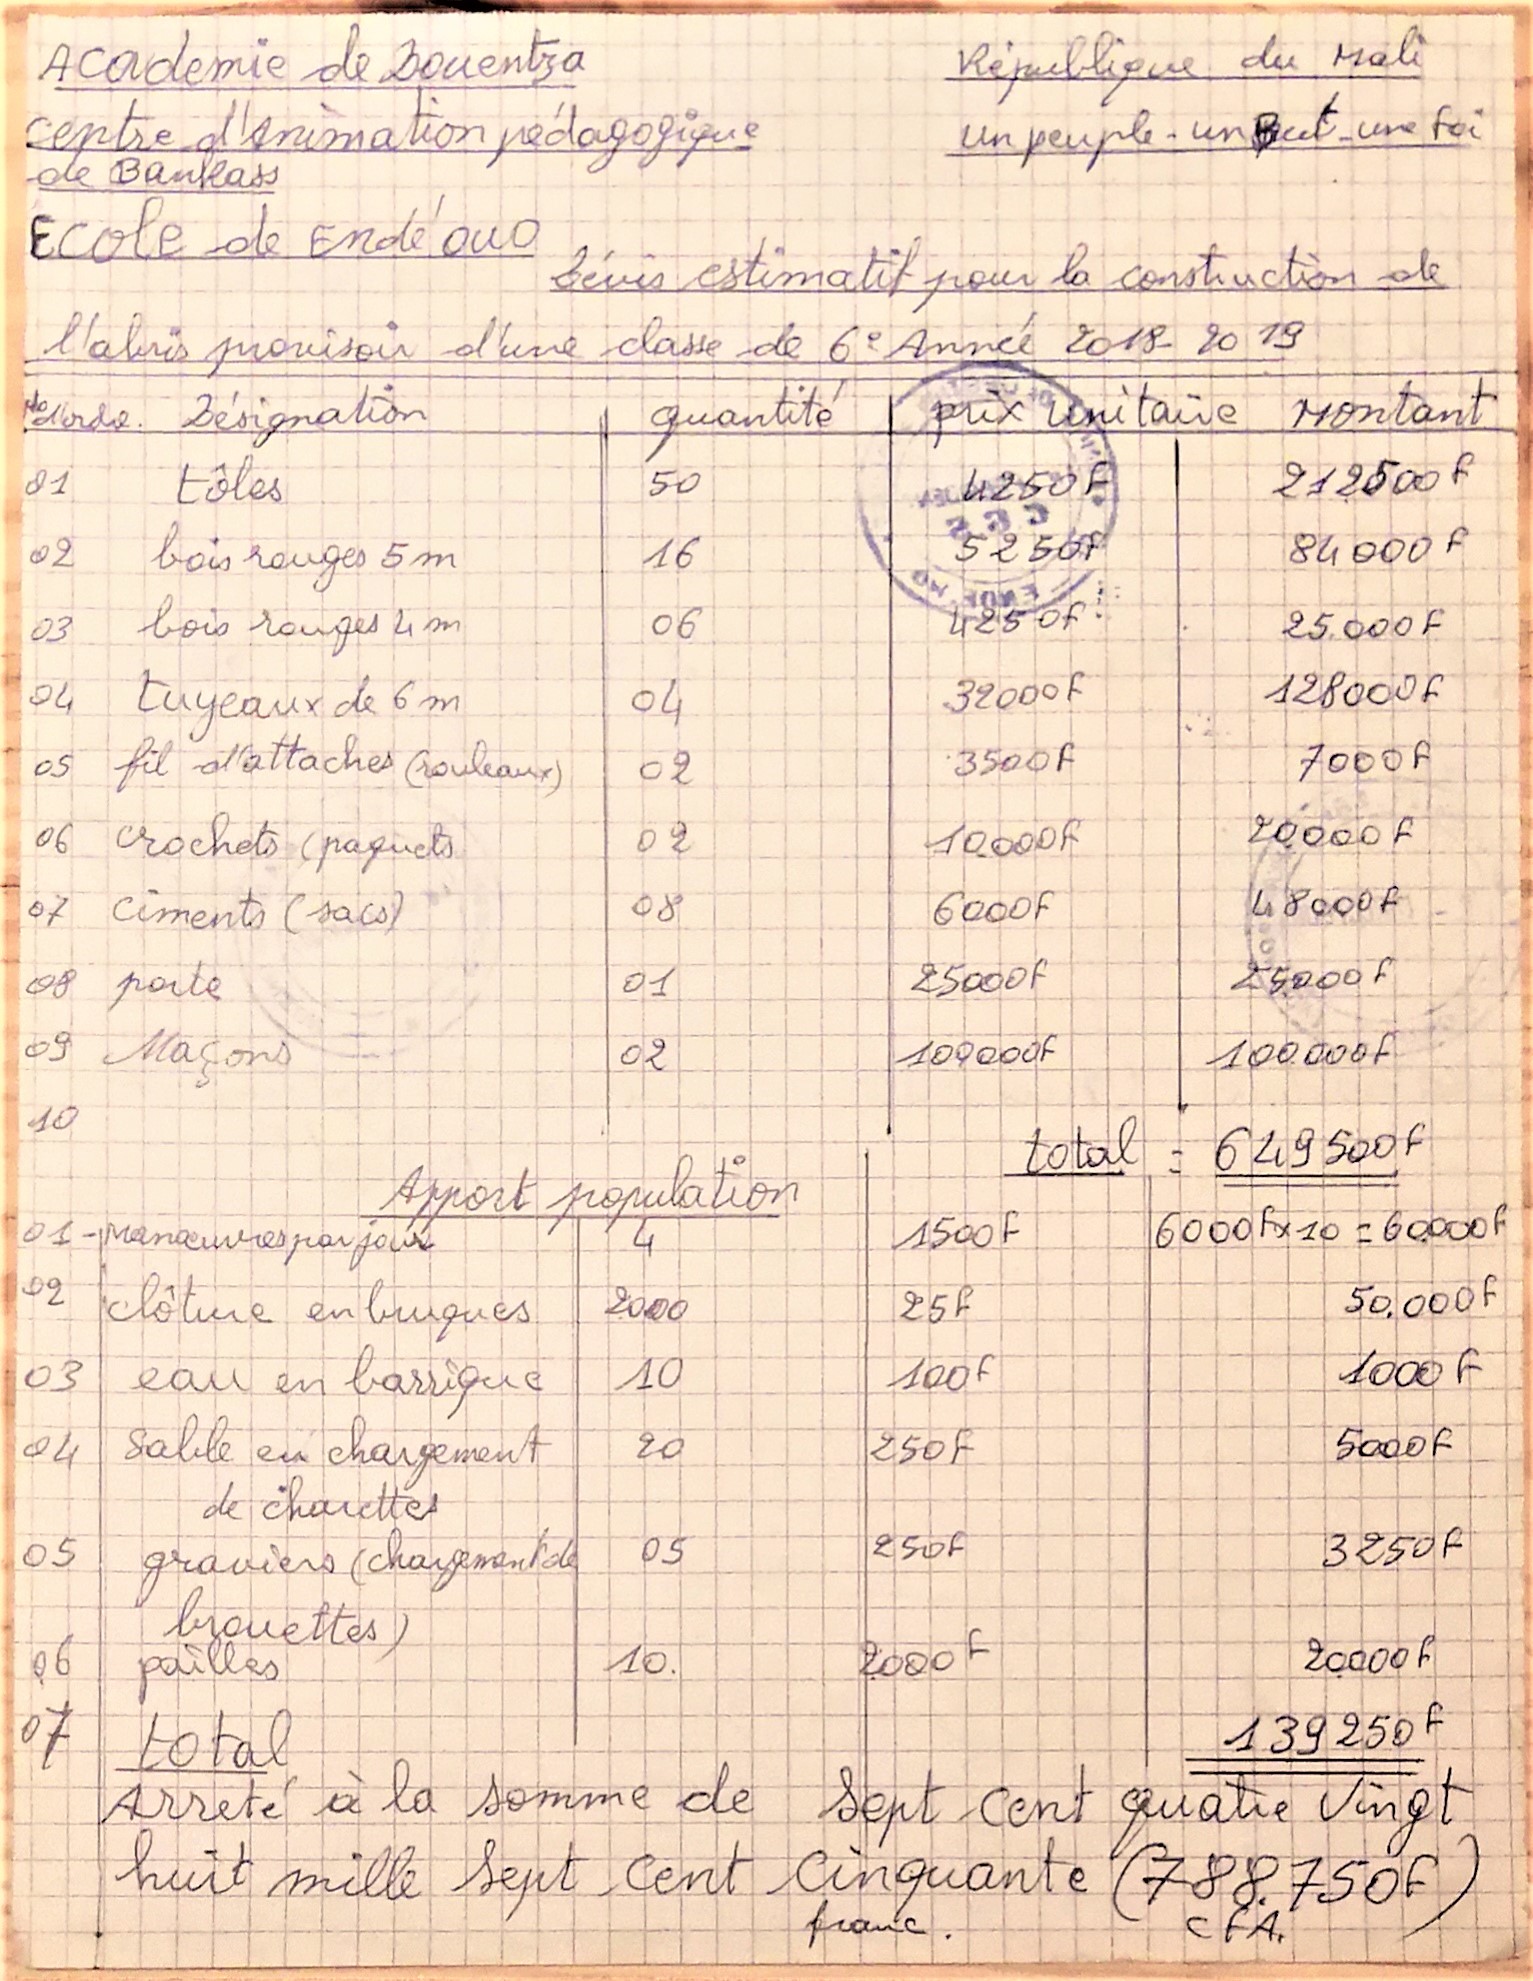 Academie de Douentza République du Mali
Centre d'Animation pédagogique un peuple - un But - une Foi
de Bankass
Ecole de Endé ouo
Dévis estimatif pour la construction de
l'abris provisoir d'une classe de 6e Année 2018- 2019
No d'orde. Désignation quantité prix Unitaire Montant
01 tôles 50 4250F 212500F
02 bois rouges 5m 16 5250F 84000F
03 bois rouges 4m 06 4250F 25.000F
04 tuyeaux de 6m 04 32000F 128000F
05 fil d'attaches (rouleaux) 02 3500F 7000F
06 crochets (paquets 02 10.000F 20.000F
07 ciments (sacs) 08 6000F 48000F
08 porte 01 25000F 25000F
09 Maçons 02 100000F 100.000F
10
total = 649500F
Apport population
01 - manœuvres par jour 4 1500F 6000F x 10 = 60.000F
02 clôture en briques 2000 25F 50.000F
03 eau en barrique 10 100F 1000F
04 Sable en chargement 20 250F 5000F
de charettes
05 graviers (chargement de 05 250F 3250F
brouettes)
06 pailles 10. 2000F 20.000F
07 total 139250F
Arreté à la somme de Sept cent quatre Vingt
huit mille Sept cent Cinquante (788.750F)
franc. CFA.